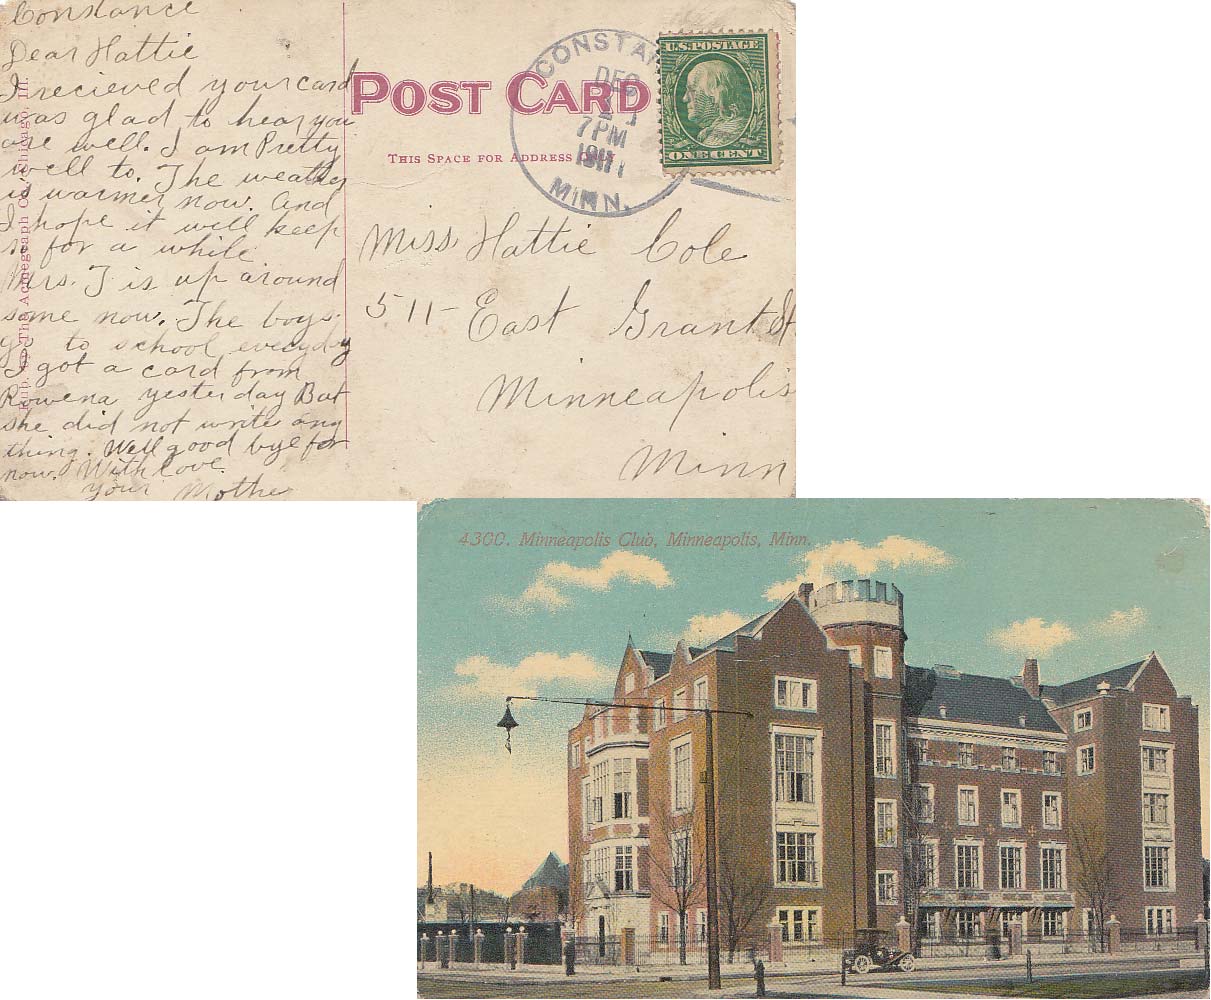 Constance
Dear Hattie
I recieved your card
was glad to hear you
are well. I am Pretty
well to. The weather
is warmer now. And
I hope it will keep
so for a while
Mrs. J is up around
some now. The boys
go to school everyday
I got a card from
Rowena yesterday But
she did not write any
thing. Well good bye for
now. With love
your Mother
Pub. by The Acmegraph Co., Chicago, Ill.
POST CARD
THIS SPACE FOR ADDRESS ONLY
CONSTAN
DEC
7PM
1911
MINN.
U.S. POSTAGE
ONE CENT
Miss Hattie Cole
511- East Grant St
Minneapolis
Minn
4300. Minneapolis Club, Minneapolis, Minn.